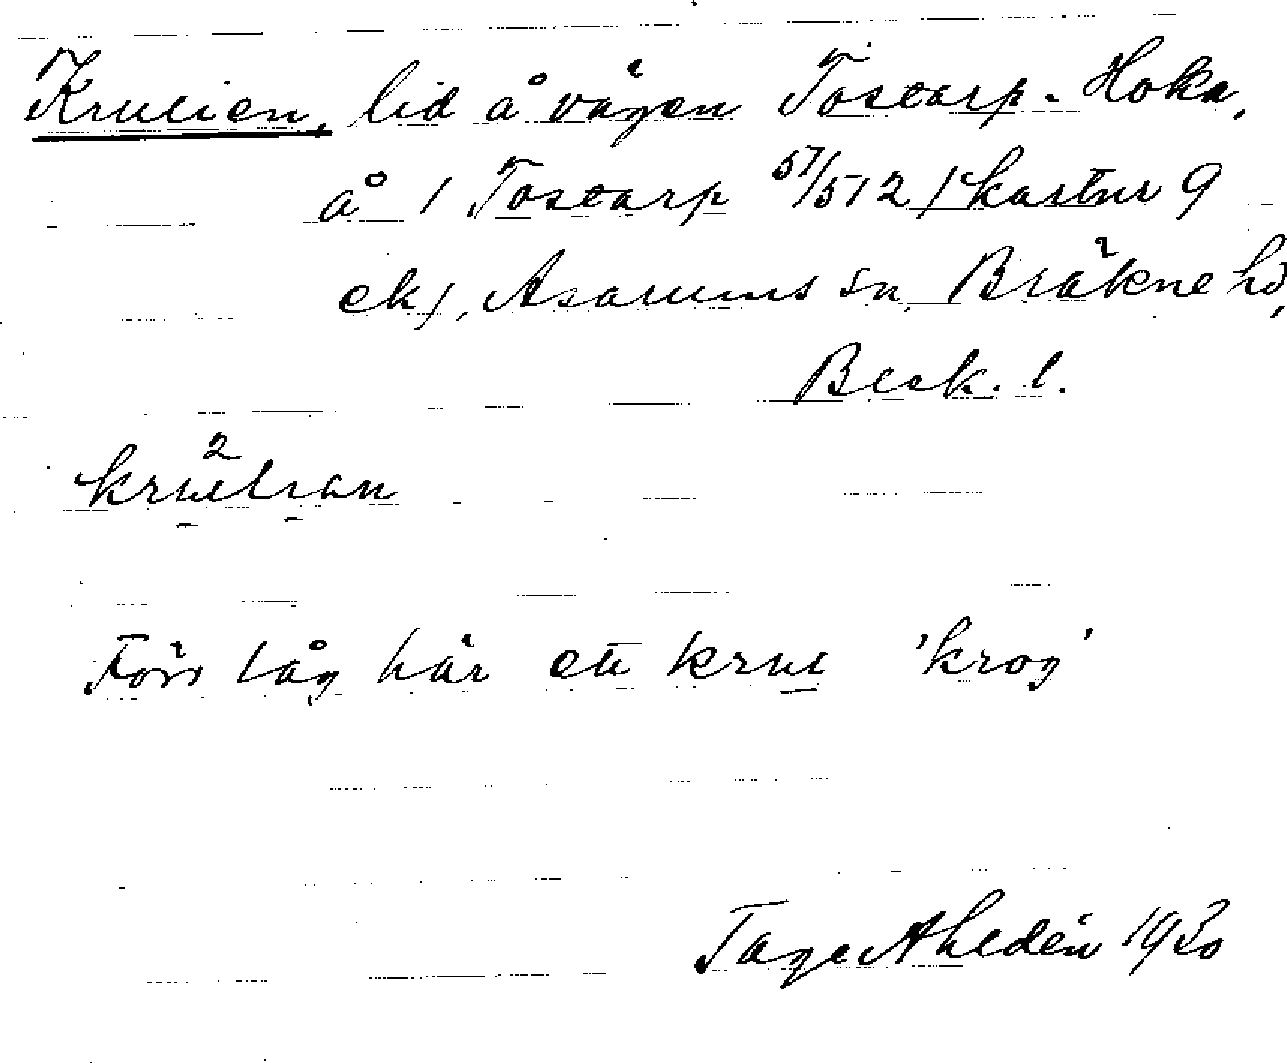 Krulien, lid å vägen Tostarp - Hoka,
å 1 Tostarp 57/512 / kartnr 9
ek/, Asarums sn, Bräkne hd,
Blek. l.
Förr låg här ett kru 'krog'
Tage Ahldén 1930